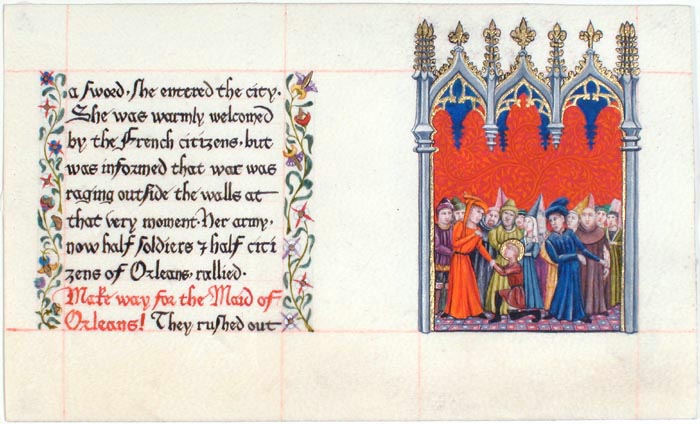 a sword. She entered the city.
She was warmly welcomed
by the French citizens, but
was informed that war was
raging outside the walls at
that very moment. Her army,
now half soldiers & half citi
zens of Orleans, rallied.
Make way for the Maid of
Orleans! They rushed out